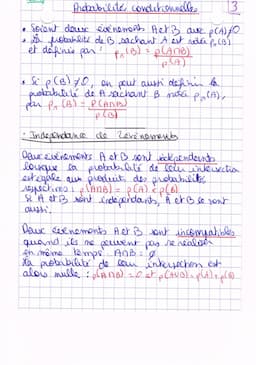 Probabilités conditionnelles 3
• Soient deux événements A et B avec p(A)≠0
• La probabilité de B sachant A est notée p_A(B)
et définie par : p_A(B) = p(A∩B)
p(A)
• Si p(B)≠0, on peut aussi définir la
probabilité de A sachant B notée p_B(A),
par p_A(B) = p(A∩B)
p(B)
• Indépendance de 2 événements
Deux événements A et B sont indépendants
lorsque la probabilité de leur intersection
est égale aux produits des probabilités
respectives : p(A∩B) = p(A) × p(B)
Si A et B sont indépendants, A et B le sont
aussi.
Deux événements A et B sont incompatibles
quand ils ne peuvent pas se réaliser
en même temps A∩B = ∅
La probabilité de leur intersection est
alors nulle : p(A∩B) = 0 et p(A∪B) = p(A)+p(B)